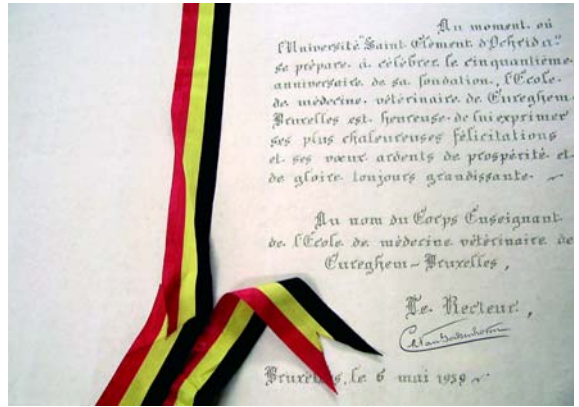 Au moment où
l'Université "Saint Clément d'Ochrida"
se prépare à célébrer le cinquantième
anniversaire de sa fondation, l'École
de médecine vétérinaire de Cureghem-
Bruxelles est heureuse de lui exprimer
ses plus chaleureuses félicitations
et ses vœux ardents de prospérité et
de gloire toujours grandissante.
Au nom du Corps Enseignant
de l'École de médecine vétérinaire de
Cureghem-Bruxelles,
Le Recteur,
Bruxelles, le 6 mai 1939